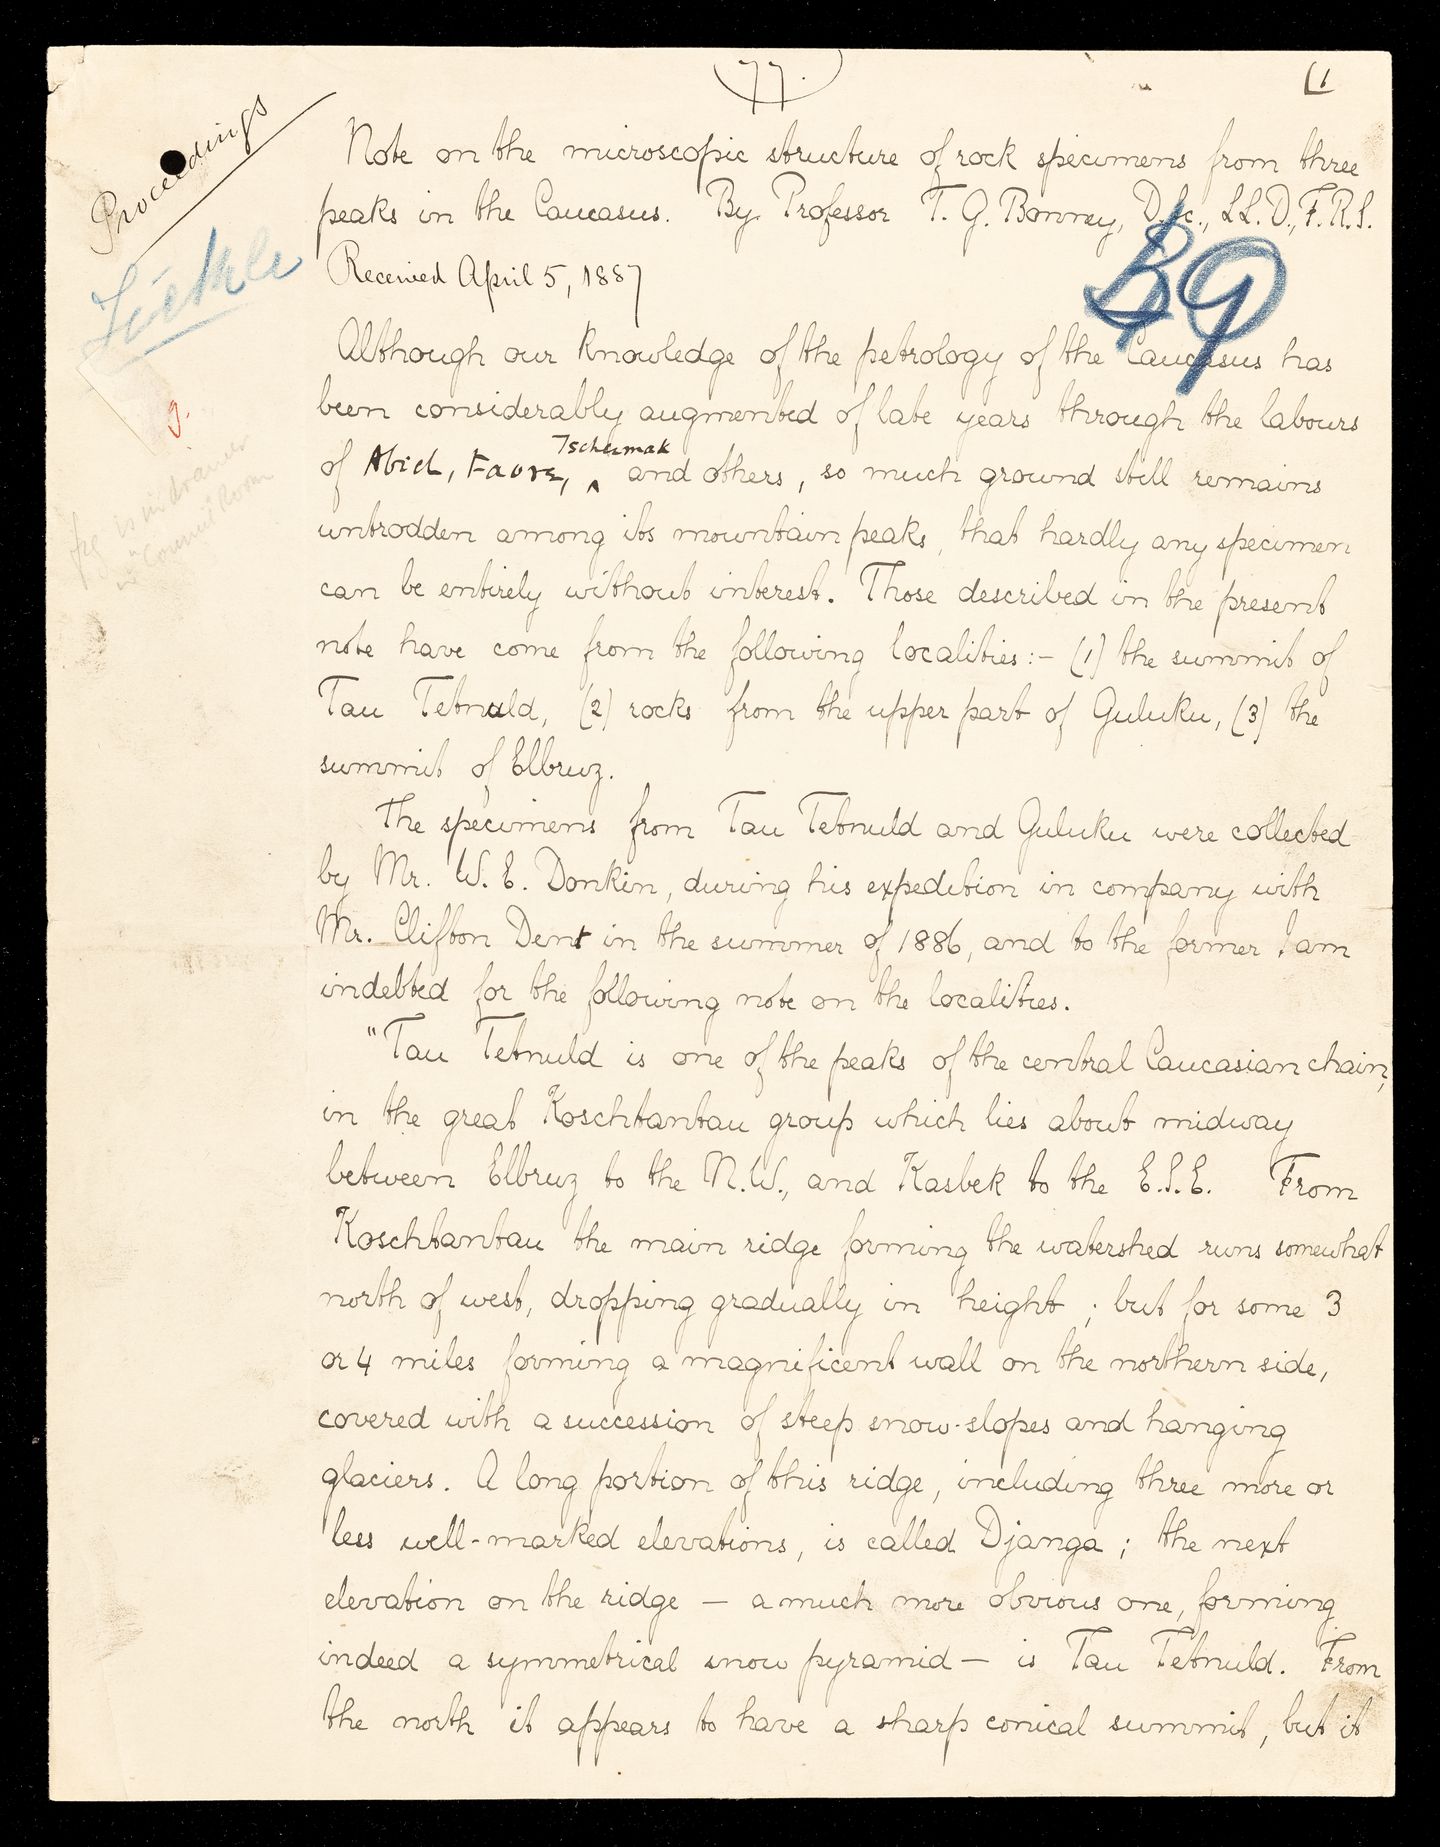 77.
(1
Proceedings
Note on the microscopic structure of rock specimens from three
peaks in the Caucasus. By Professor T. G. Bonney, D.Sc., LL.D., F.R.S.
Received April 5, 1887
Although our knowledge of the petrology of the Caucasus has
been considerably augmented of late years through the labours
Tschermak
of Abich, Favre, ^ and others, so much ground still remains
untrodden among its mountain peaks, that hardly any specimen
can be entirely without interest. Those described in the present
note have come from the following localities:- (1) the summit of
Tau Tetnuld, (2) rocks from the upper part of Guluku, (3) the
summit of Elbruz.
The specimens from Tau Tetnuld and Guluku were collected
by Mr. W. E. Donkin, during his expedition in company with
Mr. Clifton Dent in the summer of 1886, and to the former I am
indebted for the following note on the localities.
"Tau Tetnuld is one of the peaks of the central Caucasian chain,
in the great Koschtantau group which lies about midway
between Elbruz to the N.W., and Kasbek to the E.S.E. From
Koschtantau the main ridge forming the watershed runs somewhat
north of west, dropping gradually in height; but for some 3
or 4 miles forming a magnificent wall on the northern side,
covered with a succession of steep snow-slopes and hanging
glaciers. A long portion of this ridge, including three more or
less well-marked elevations, is called Djanga; the next
elevation on the ridge — a much more obvious one, forming
indeed a symmetrical snow pyramid — is Tau Tetnuld. From
the north it appears to have a sharp conical summit, but it